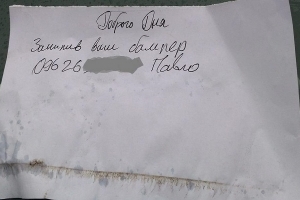 Доброго Дня
Зачипив ваш бампер
09626 Павло